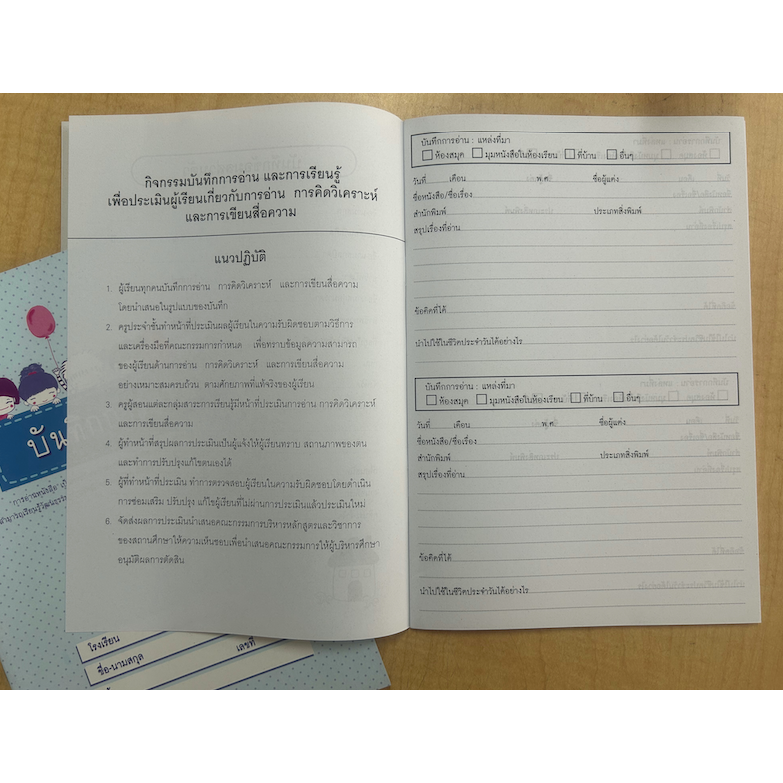 กิจกรรมบันทึกการอ่าน และการเรียนรู้
เพื่อประเมินผู้เรียนเกี่ยวกับการอ่าน การคิดวิเคราะห์
และการเขียนสื่อความ
แนวปฏิบัติ
1. ผู้เรียนทุกคนบันทึกการอ่าน การคิดวิเคราะห์ และการเขียนสื่อความ
โดยนำเสนอในรูปแบบของบันทึก
2. ครูประจำชั้นทำหน้าที่ประเมินผลผู้เรียนในความรับผิดชอบตามวิธีการ
และเครื่องมือที่คณะกรรมการกำหนด เพื่อทราบข้อมูลความสามารถ
ของผู้เรียนด้านการอ่าน การคิดวิเคราะห์ และการเขียนสื่อความ
อย่างเหมาะสมครบถ้วน ตามศักยภาพที่แท้จริงของผู้เรียน
3. ครูผู้สอนแต่ละกลุ่มสาระการเรียนรู้มีหน้าที่ประเมินการอ่าน การคิดวิเคราะห์
และการเขียนสื่อความ
4. ผู้ทำหน้าที่สรุปผลการประเมินเป็นผู้แจ้งให้ผู้เรียนทราบ สถานภาพของตน
และทำการปรับปรุงแก้ไขตนเองได้
5. ผู้ที่ทำหน้าที่ประเมิน ทำการตรวจสอบผู้เรียนในความรับผิดชอบโดยดำเนิน
การซ่อมเสริม ปรับปรุง แก้ไขผู้เรียนที่ไม่ผ่านการประเมินแล้วประเมินใหม่
6. จัดส่งผลการประเมินนำเสนอคณะกรรมการบริหารหลักสูตรและวิชาการ
ของสถานศึกษาให้ความเห็นชอบเพื่อนำเสนอคณะกรรมการให้ผู้บริหารศึกษา
อนุมัติผลการตัดสิน
บันทึกการอ่าน : แหล่งที่มา
ห้องสมุด มุมหนังสือในห้องเรียน ที่บ้าน อื่นๆ
วันที่ เดือน พ.ศ. ชื่อผู้แต่ง
ชื่อหนังสือ/ชื่อเรื่อง
สำนักพิมพ์ ประเภทสิ่งพิมพ์
สรุปเรื่องที่อ่าน
ข้อคิดที่ได้
นำไปใช้ในชีวิตประจำวันได้อย่างไร
บันทึกการอ่าน : แหล่งที่มา
ห้องสมุด มุมหนังสือในห้องเรียน ที่บ้าน อื่นๆ
วันที่ เดือน พ.ศ. ชื่อผู้แต่ง
ชื่อหนังสือ/ชื่อเรื่อง
สำนักพิมพ์ ประเภทสิ่งพิมพ์
สรุปเรื่องที่อ่าน
ข้อคิดที่ได้
นำไปใช้ในชีวิตประจำวันได้อย่างไร
โรงเรียน
ชื่อ-นามสกุล เลขที่